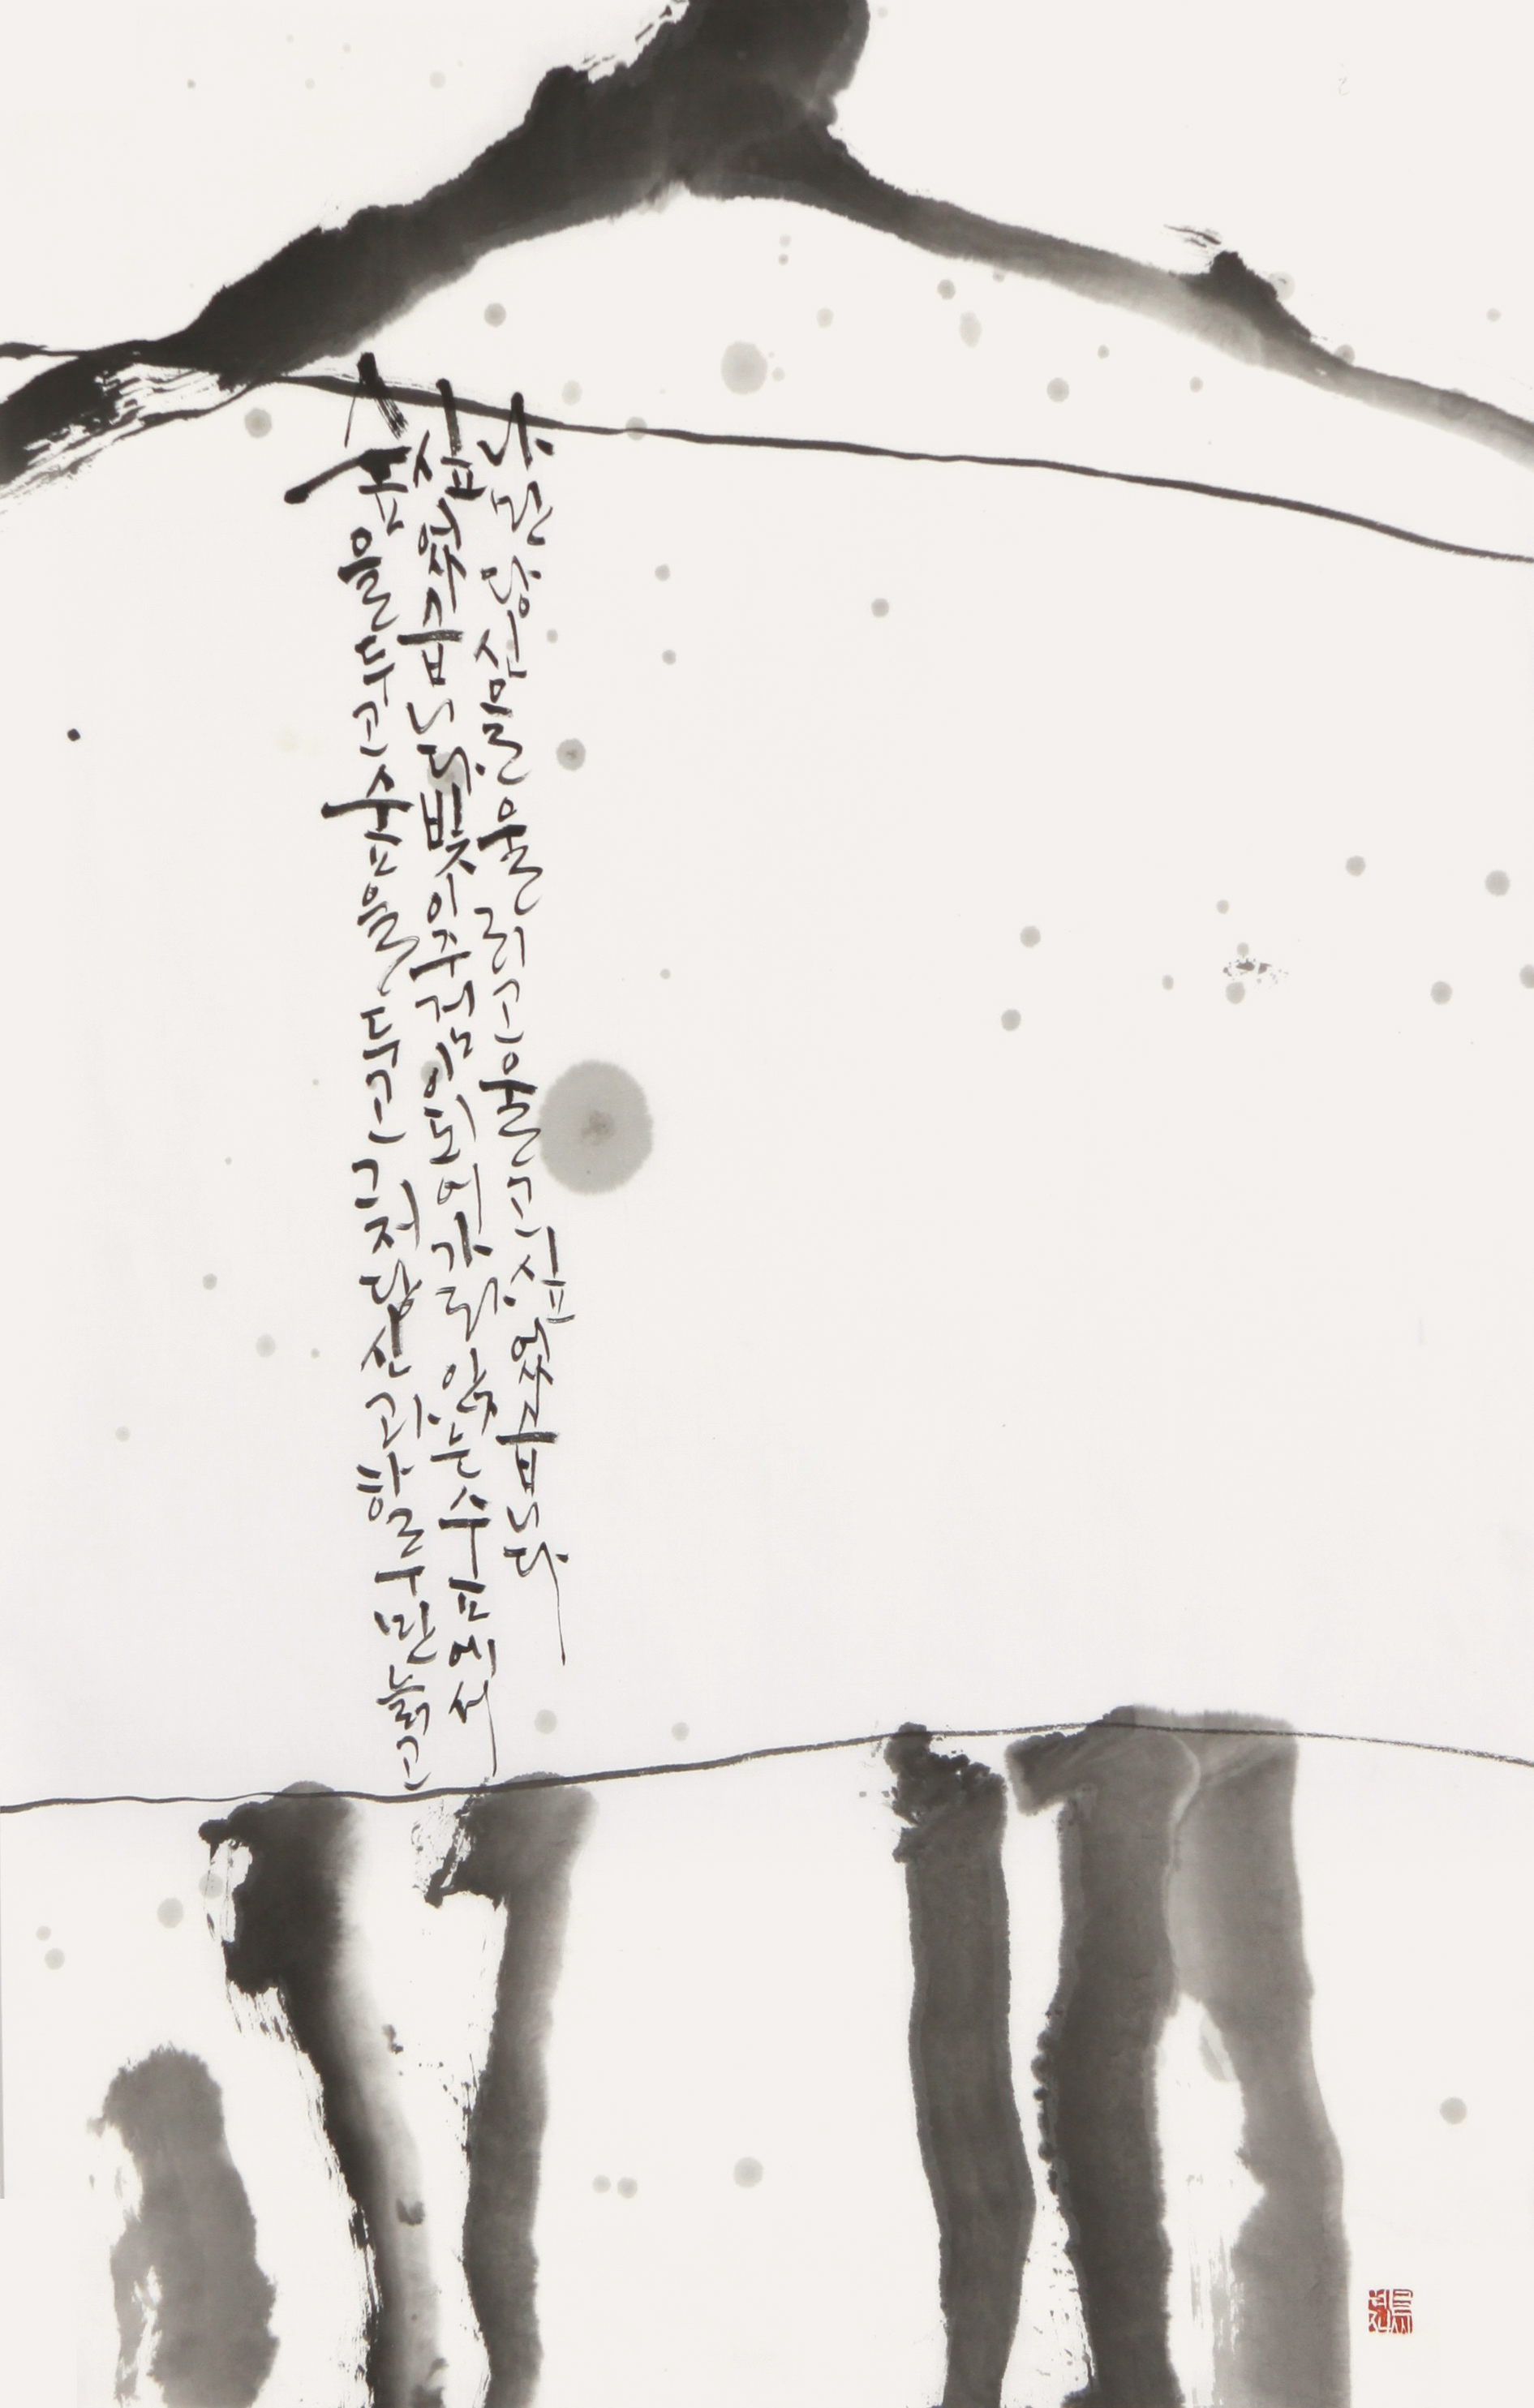 숲을 두고 숲을 두고 그저 당신과 하루만 늙고
싶었습니다 빛이 주검이 되어 가라앉는 숲에서
나만 당신을 울리고 울고 싶었습니다